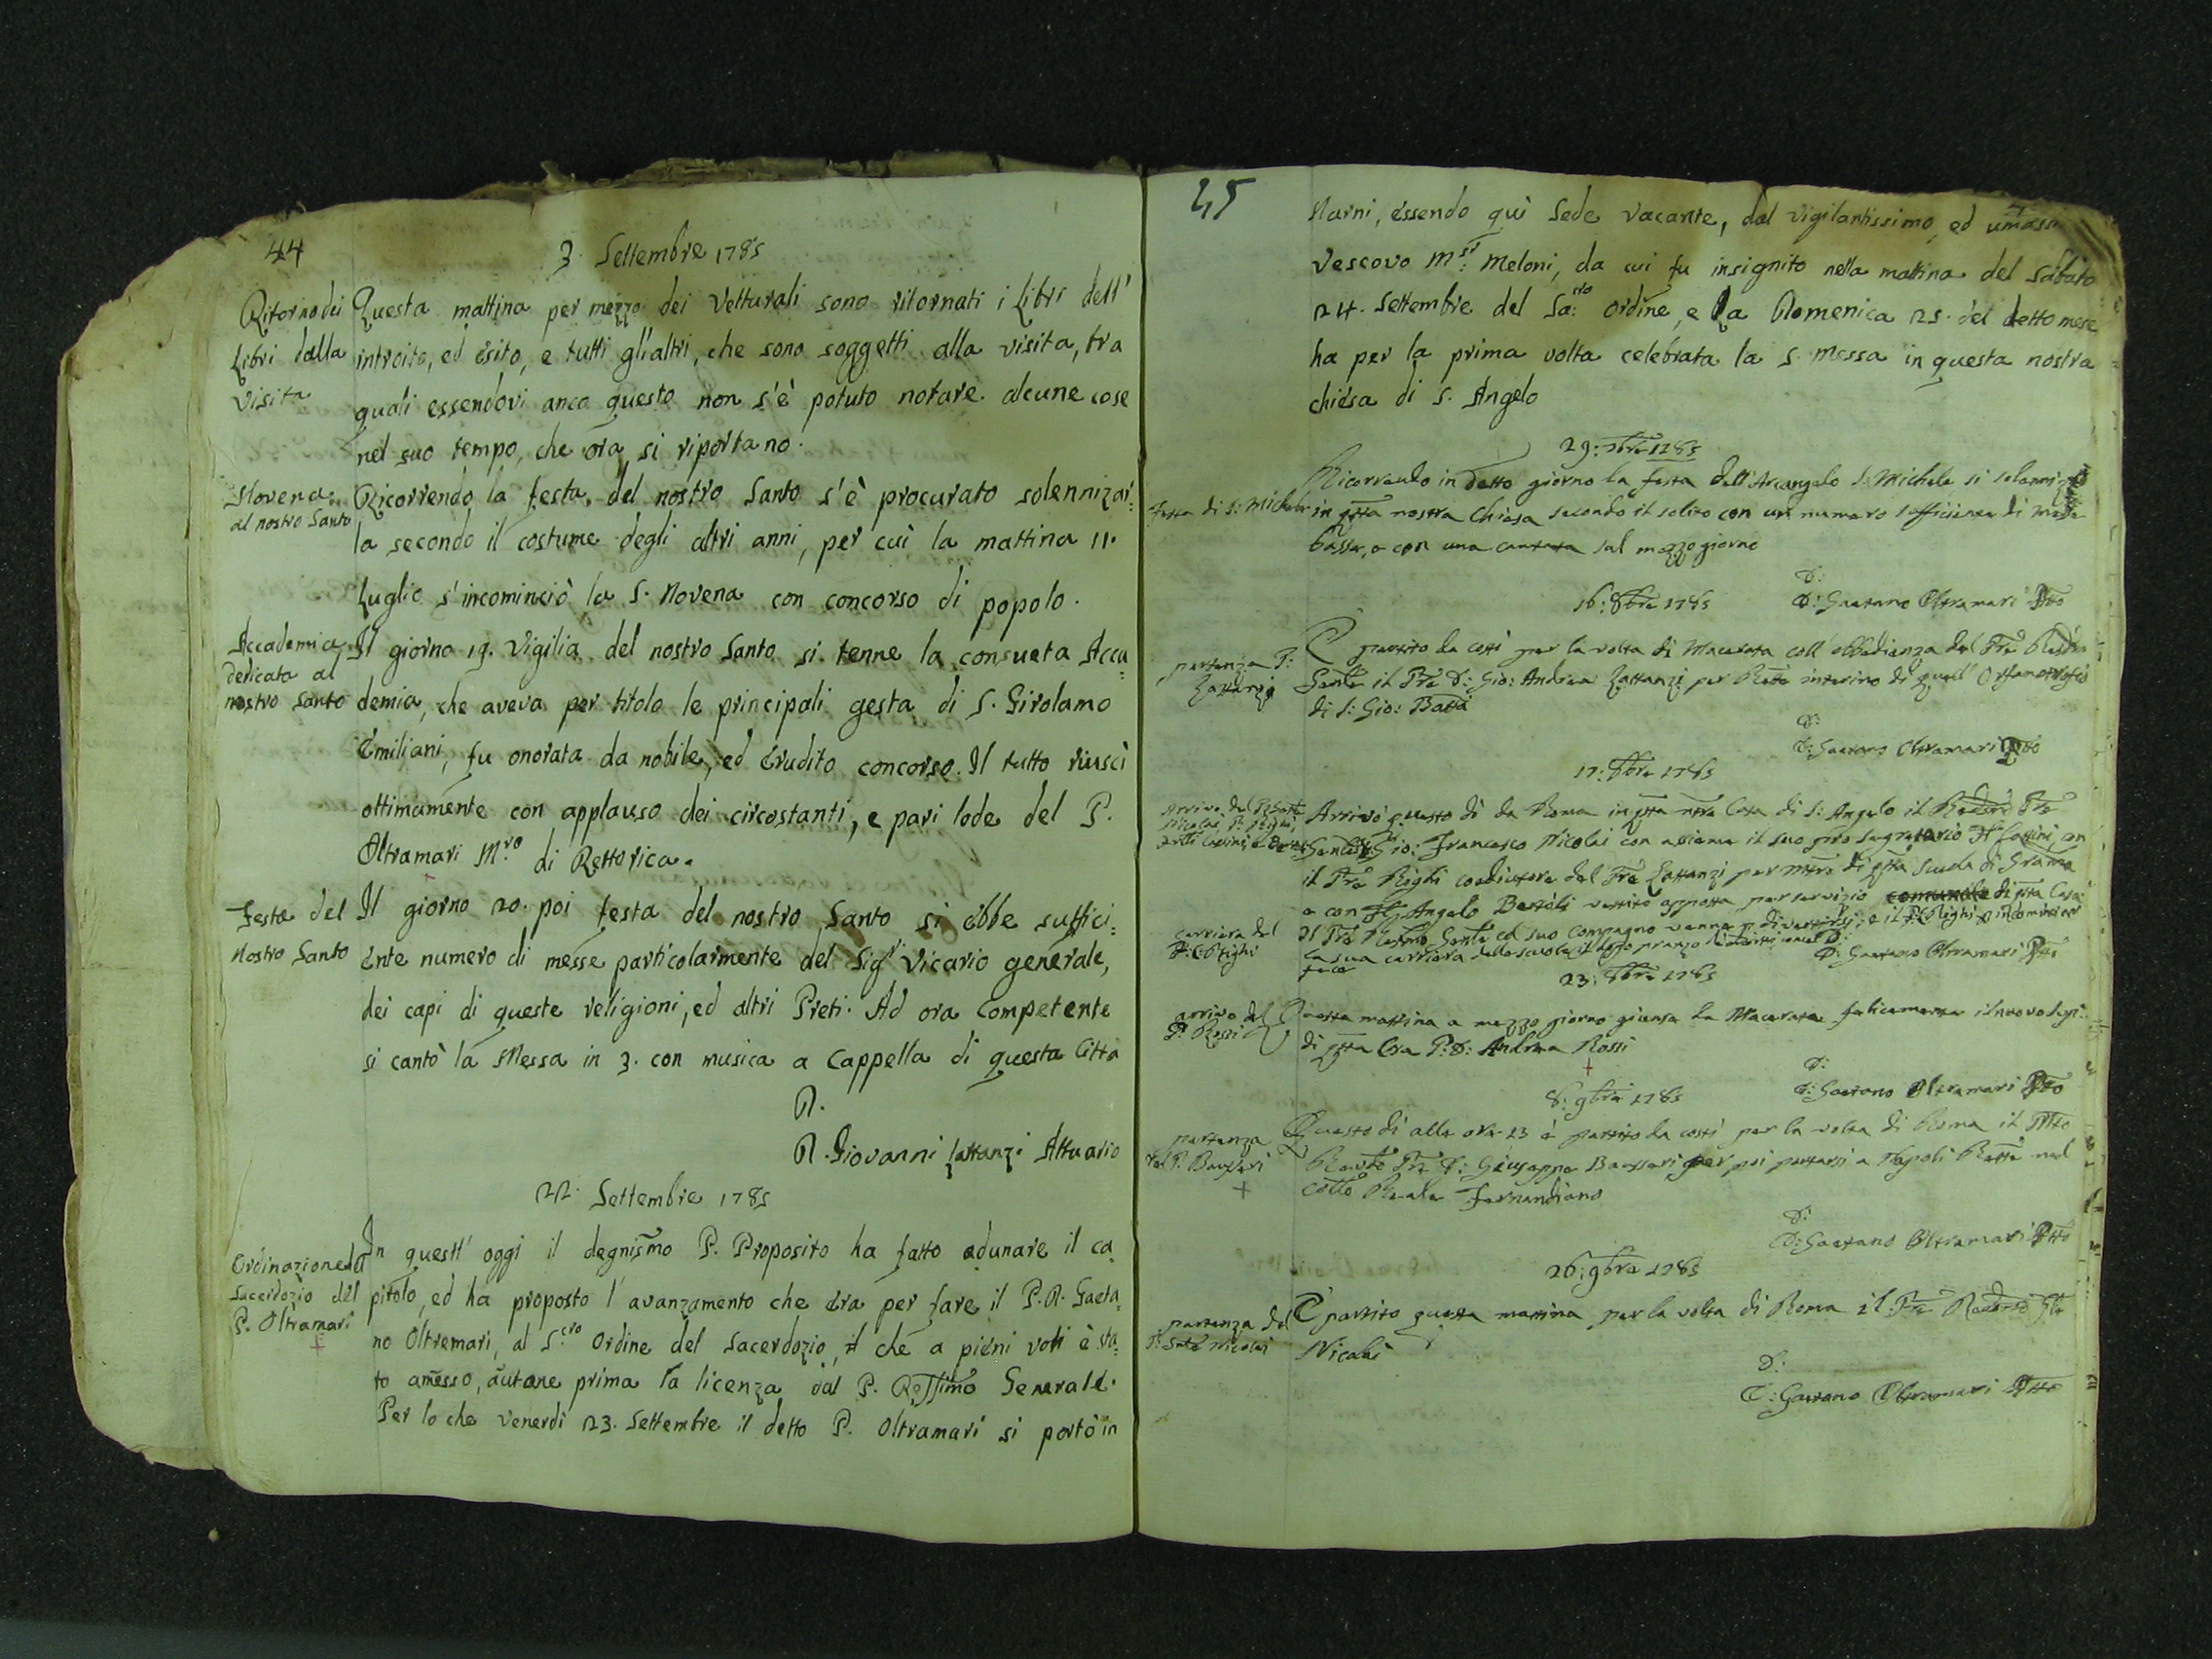 44
3. Settembre 1785
Ritorno dei
Libri dalla
visita
Questa mattina per mezzo dei Vetturali sono ritornati i Libri dell'
introito, ed esito, e tutti gl'altri, che sono soggetti alla visita, tra
quali essendovi anco questo non s'è potuto notare alcune cose
nel suo tempo, che ora si riportano.
Novena
al nostro Santo
Ricorrendo la festa del nostro Santo s'è procurato solennizar:
la secondo il costume degli altri anni, per cui la mattina 11.
Luglio s'incominciò la S. Novena con concorso di popolo.
Accademia
dedicata al
nostro Santo
Il giorno 19. Vigilia del nostro Santo si tenne la consueta Acca
demia, che aveva per titolo le principali gesta di S. Girolamo
Emiliani, fu onorata da nobile, ed erudito concorso. Il tutto riuscì
ottimamente con applauso dei circostanti, e pari lode del P.
Oltramari M.ro di Rettorica.
Festa del
Nostro Santo
Il giorno 20. poi festa del nostro Santo si ebbe suffici:
ente numero di messe particolarmente del Sigr Vicario generale,
dei capi di queste religioni, ed altri Preti. Ad ora competente
si cantò la Messa in 3. con musica a Cappella di questa Città
D.
D. Giovanni Lattanzi Attuario
22. Settembre 1785
Ordinazione al
Sacerdozio del
P. Oltramari
In quest' oggi il degnismo P. Proposito ha fatto adunare il ca
pitolo, ed ha proposto l'avanzamento che era per fare il P. D. Gaeta
no Oltremari, al S.cro Ordine del Sacerdozio, il che a pieni voti è sta
to amesso, autane prima la licenza dal P. Revssimo Generale.
Per lo che Venerdì 23. Settembre il detto P. Oltramari si portò in
45
Narni, essendo quì Sede vacante, dal vigilantissimo, ed umaSS
Vescovo M.sr Meloni, da cui fu insignito nella mattina del Sabato
24. Settembre del Sa:cro ordine, e la Domenica 25. del detto mese
ha per la prima volta celebrata la S. Messa in questa nostra
chiesa di S. Angelo
29: 7bre 1785
Festa di S: Michele
Ricorrendo in detto giorno la festa dell'Arcangelo S. Michele si solenni
in qsta nostra Chiesa secondo il solito con un numero sufficiente di Messe
basse, e con una cantata sul mezzo giorno
D:
D: Gaetano Oltramari Atto
16: 8bre 1785
partenza P:
Lattanzi
E partito da costì per la volta di Macerata coll'obbedienza del Pre
Genle il Pre D: Gio: Andrea Lattanzi per Rettre interino di quell'Orfanotrofio
di S: Gio: Batta
D:
D: Gaetano Oltramari Atto
17: 8bre 1785
Arrivo del
Nicolai, P: Righi,
Arrivò questo dì da Roma in qsta nra Casa di S: Angelo il Pre
Genle Gio: Francesco Nicolai con assieme il suo segretario
il Pre Righi coadiutore del Pre Lattanzi per Mtro di qsta Scuola di Grama
e con Angelo Bertoli vestito apposta per servizio comunale di qsta Casa.
Il Pre Genle col suo Compagno venne a divertirsi; e il P: Righi a incominciar
la sua carriera delle scuole
fece
carriera del
P: Righi
D:
D: Gaetano Oltramari Atto
23: 8bre 1785
arrivo del
P: Rossi
Questa mattina a mezzo giorno giunse da Macerata felicemente il nuovo
di qsta Casa P: D: Andrea Rossi
D:
D: Gaetano Oltramari Atto
8: 9bre 1785
partenza
del P.
Questo dì alle ore 23 è partito da costì per la volta di Roma il
Pre D: Giuseppe per poi portarsi a Napoli Rettre nel
Reale Fernandiano
D:
D: Gaetano Oltramari Atto
26: 9bre 1785
partenza del
Nicolai
E partito questa mattina per la volta di Roma il Pre
Nicolai
D:
D: Gaetano Oltramari Atto